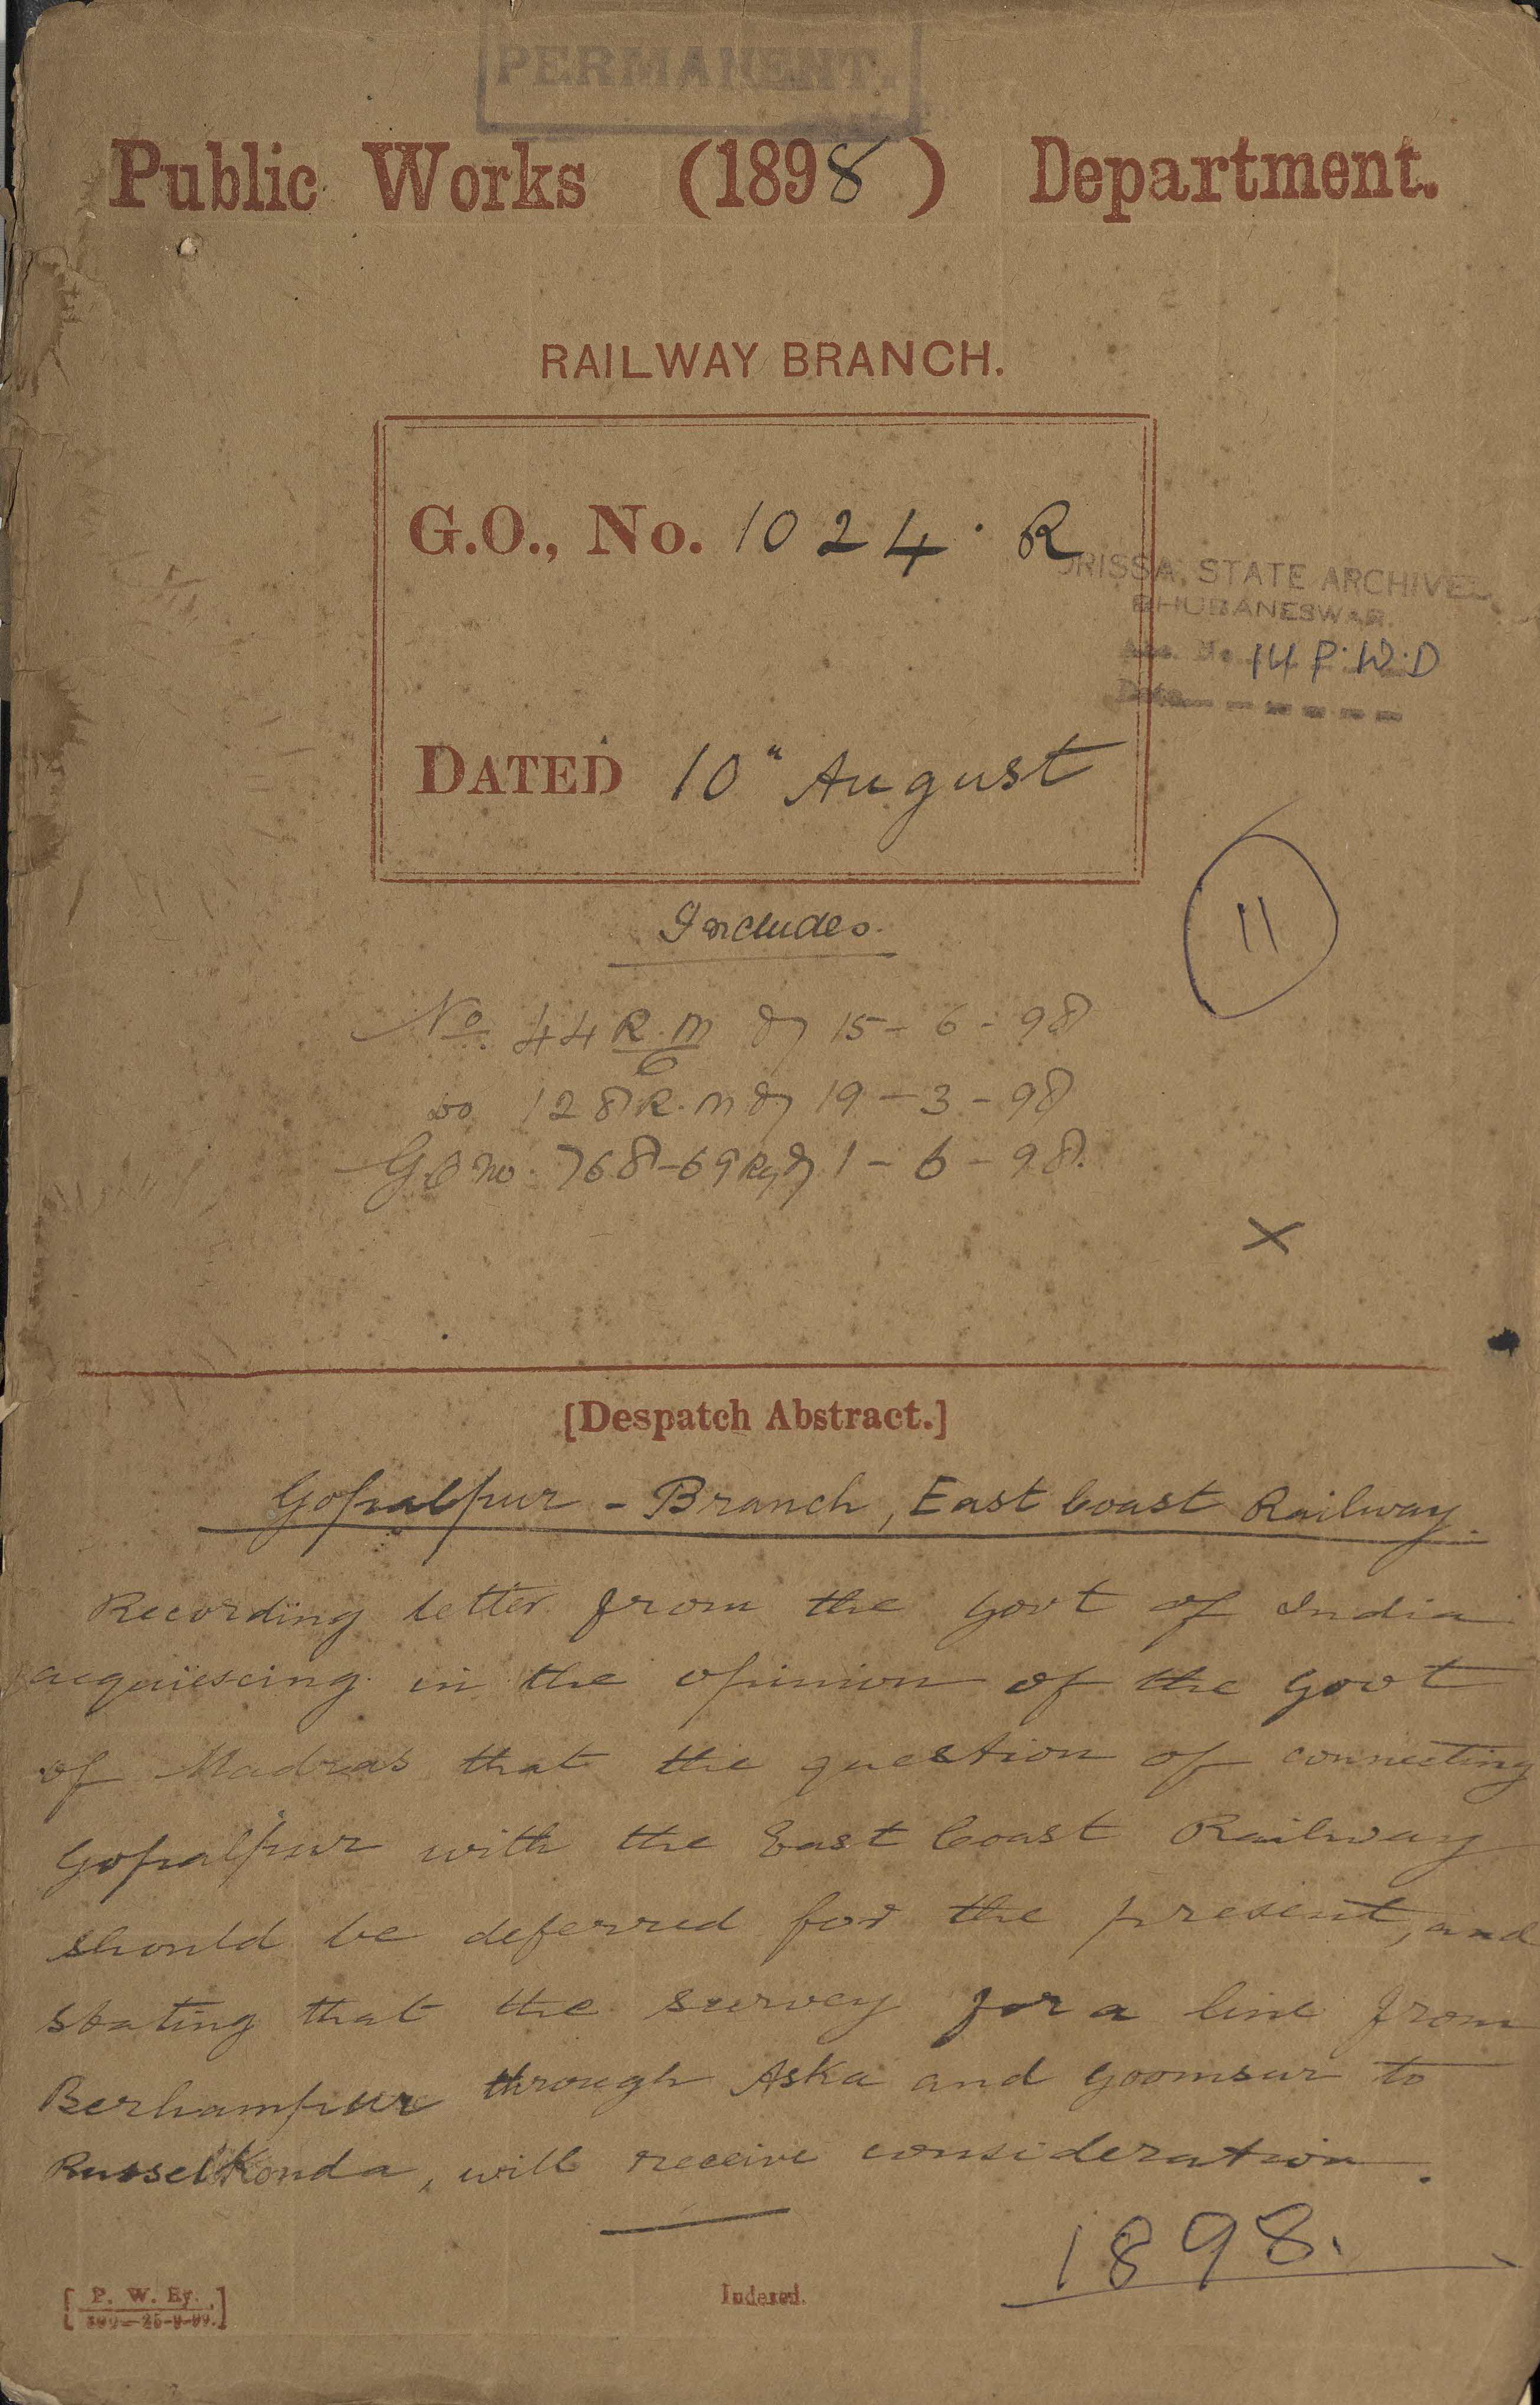 PERMANENT.
Public Works (1898) Department.
RAILWAY BRANCH.
G.O., No. 1024. R
ORISSA STATE ARCHIVES
BHUBANESWAR.
14 P.W.D
Date
DATED 10th August
11
Includes.
No. 44 R.M 15-6-98
do 128 R.M 19-3-98
G.O no. 768-69 Ry 1-6-98.
X
[Despatch Abstract.]
Gopalpur - Branch, East Coast Railway.
Recording letter from the Govt of India
acquiescing in the opinion of the Govt
of Madras that the question of connecting
Gopalpur with the East Coast Railway
should be deferred for the present, and
stating that the survey for a line from
Berhampur through Aska and Goomsur to
Russelkonda, will receive consideration.
1898.
[P. W. Ry.]
Indexed.